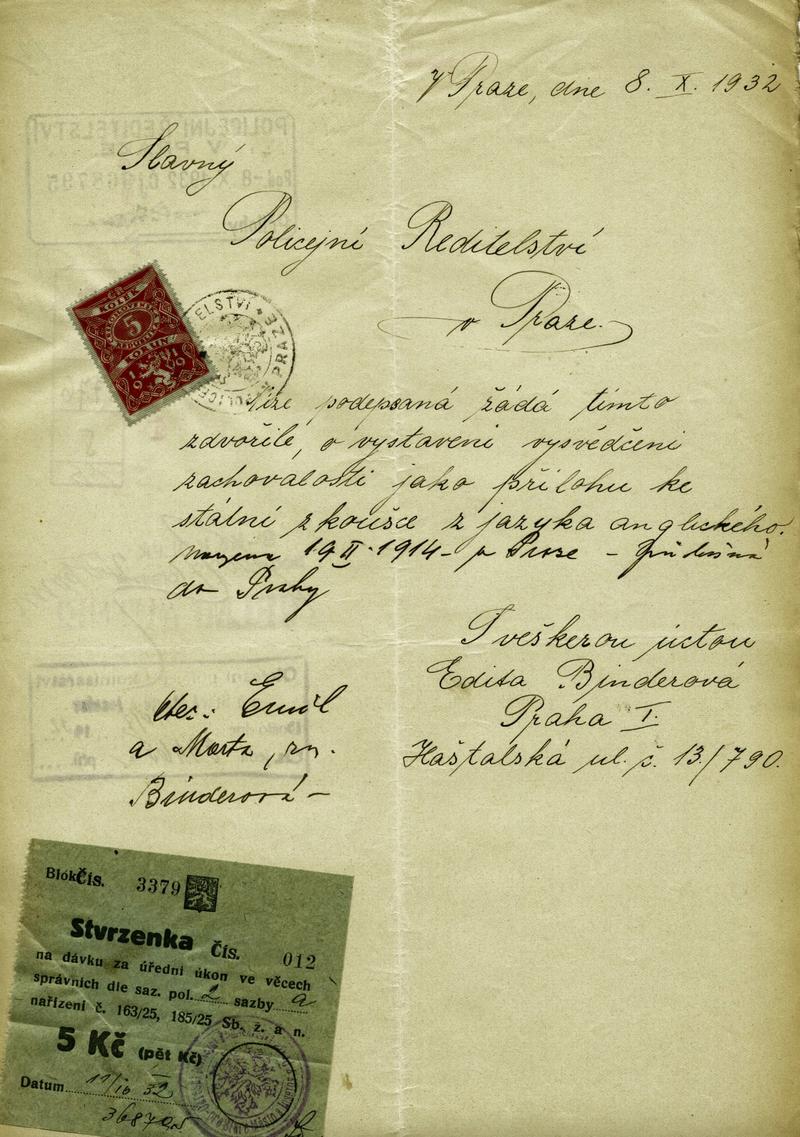 V Praze, dne 8. X. 1932
Slavný
Policejní Reditelství
v Praze.
KOLEK
5
1919
ELSTVÍ ★ PRAZE
Níže podepsaná žádá tímto
zdvořile, o vystavení vysvědčení
zachovalosti jako přílohu ke
státní zkoušce z jazyka anglického.
19 II. 1914 - v Praze - příslušná
do Prahy
S veškerou úctou
Edita Binderová
Praha I.
Haštalská ul. č. 13/790.
otec: Emil
a Marta, roz.
Binderová -
Blok Čís. 3379
Stvrzenka Čís. 012
na dávku za úřední úkon ve věcech
správních dle saz. pol. 2 sazby a
nařízení č. 163/25, 185/25 Sb. z. a n.
5 Kč (pět Kč)
Datum 11/10 32